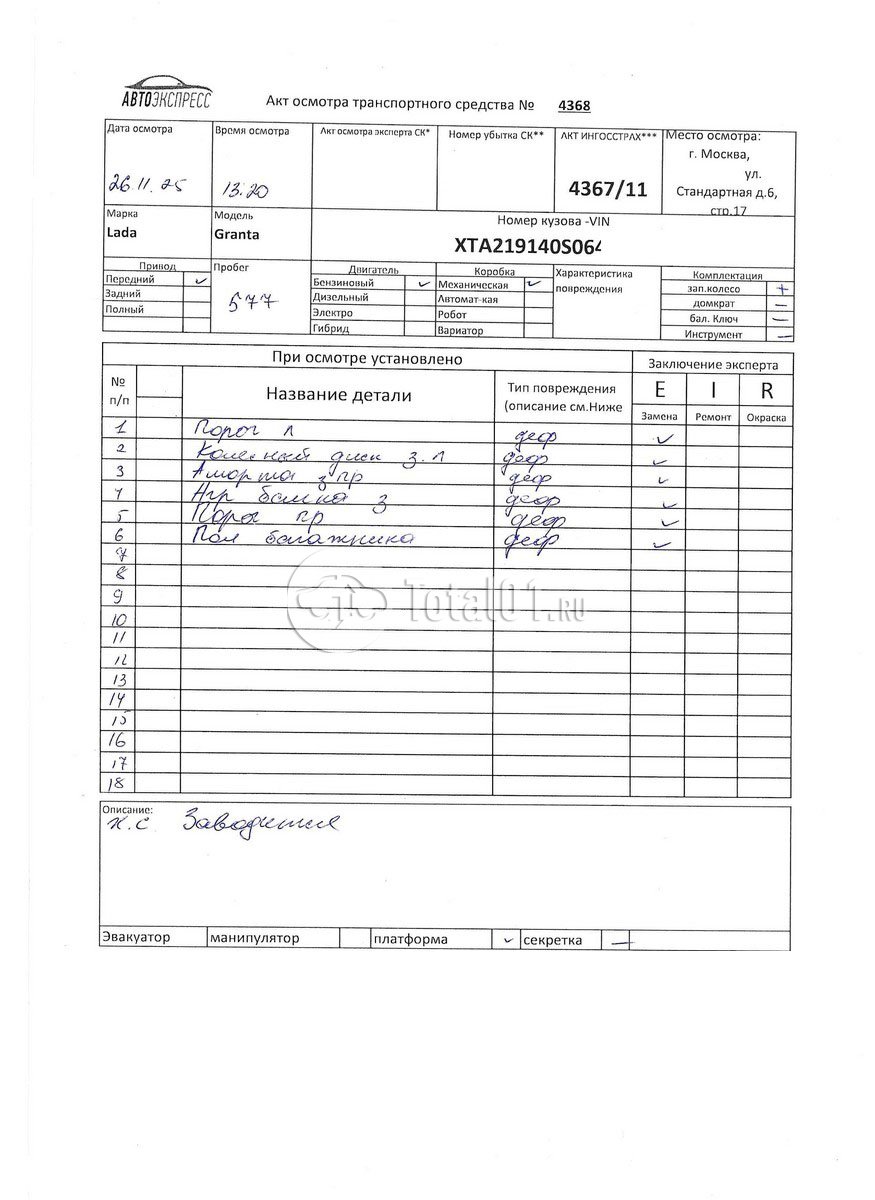 АВТОЭКСПРЕСС
Акт осмотра транспортного средства № 4368
Дата осмотра Время осмотра Акт осмотра эксперта СК* Номер убытка СК** АКТ ИНГОССТРАХ*** Место осмотра:
г. Москва,
ул.
26.11.25 13:20 4367/11 Стандартная д.6,
стр.17
Марка Модель Номер кузова -VIN
Lada Granta XTA219140S064
Привод Пробег Двигатель Коробка Характеристика Комплектация
Передний ✓ Бензиновый ✓ Механическая ✓ повреждения зап.колесо +
Задний 577 Дизельный Автомат-кая домкрат —
Полный Электро Робот бал. Ключ —
Гибрид Вариатор Инструмент —
При осмотре установлено Заключение эксперта
№ п/п Название детали Тип повреждения (описание см.Ниже E I R
Замена Ремонт Окраска
1 Порог л деф ✓
2 Колесный диск з.л деф ✓
3 Аморта з пр деф ✓
4 балка з деф ✓
5 Порог пр деф ✓
6 Пол багажника деф ✓
7
8
9
10
11
12
13
14
15
16
17
18
Total01.RU
Описание:
н.с Заводится
Эвакуатор манипулятор платформа ✓ секретка —